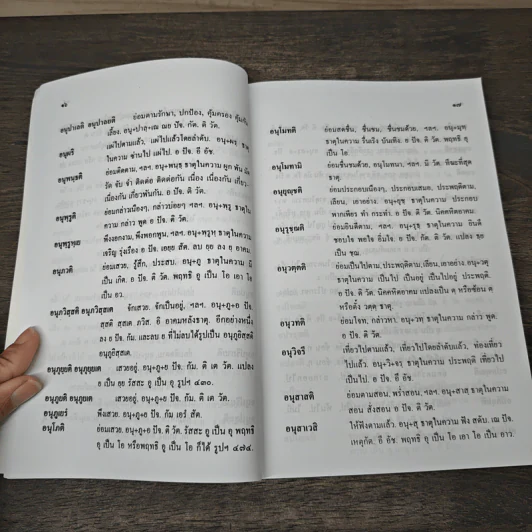 ๑๖
อนุปาเลติ อนุปาลยติ ย่อมตามรักษา, ปกป้อง, คุ้มครอง คุ้มกัน,
เลี้ยง. อนุ+ปาลฺ+เณ ณย ปัจ. กัต. ติ วัต.
อนุพฺนฺธติ ย่อมติดตาม, ฯลฯ. อนุ+พนฺธฺ ธาตุในความ ผูก พัน มัด
รัด จับ จำ ติดต่อ ติดต่อกัน เนื่อง เนื่องกัน เกี่ยว
เนื่องกัน เกี่ยวพันกัน. อ ปัจ. ติ วัต.
อนุพฺรูติ ย่อมกล่าวเนืองๆ, กล่าวบ่อยๆ ฯลฯ. อนุ+พฺรู ธาตุใน
ความ กล่าว พูด อ ปัจ. ติ วัต.
อนุภวติ ย่อมเสวย, รู้สึก, ประสบ. อนุ+ภู ธาตุในความ มี
เป็น เกิด. อ ปัจ. ติ วัต. พฤทธิ อู เป็น โอ เอา โอ
เป็น อว.
อนุภวิสฺสติ อนุภวิสฺสเต จักเสวย. จักเป็นอยู่, ฯลฯ. อนุ+ภู+อ ปัจ.
สฺสติ สฺสเต ภวิส. อิ อาคมหลังธาตุ. อีกอย่างหนึ่ง
ลง อ ปัจ. กัม. และลบ อ ที่ไม่ลบได้รูปเป็น อนุภูยิสฺสติ
อนุภูยิสฺสเต.
อนุภูยฺยติ อนุภูยฺยเต เสวยอยู่. อนุ+ภู+ย ปัจ. กัม. ติ เต วัต. แปลง
อนุภูยติ อนุภูยเต เสวยอยู่. อนุ+ภู+ย ปัจ. กัม. ติ เต วัต.
อนุโภติ ย่อมเสวย. อนุ+ภู+อ ปัจ. ติ วัต. รัสสะ อู เป็น อุ พฤทธิ
อุ เป็น โอ หรือพฤทธิ อู เป็น โอ ก็ได้ รูปฯ ๔๗๔.
๑๗
อนุโมทติ ย่อมสดชื่น, ชื่นชม, ชื่นชมด้วย, ฯลฯ. อนุ+มุทฺ
ธาตุในความ รื่นเริง บันเทิง อ ปัจ. ติ วัต. พฤทธิ อุ
เป็น โอ
อนุโมทามิ ย่อมชื่นชมด้วย, อนุโมทนา, ฯลฯ. มิ วัต. ทีฆะที่สุด
ธาตุ.
อนุยุญฺชติ ย่อมประกอบเนืองๆ, ประกอบเสมอ, ประพฤติตาม,
เลียน, เอาอย่าง อนุ+ยุชฺ ธาตุในความ ประกอบ
พากเพียร ทำ กระทำ. อ ปัจ. ติ วัต. นิคคหิตอาคม
อนุรุชฺฌติ ย่อมยินดีตาม, ฯลฯ. อนุ+รุธฺ ธาตุในความ ยินดี
อนุวตฺตติ ย่อมเป็นไปตาม, ประพฤติตาม, เลียน, เอาอย่าง อนุ+วตุ
ธาตุในความ เป็นไป เป็นอยู่ เป็นไปอยู่ ประพฤติ.
อ ปัจ. ติ วัต. นิคคหิตอาคม แปลงเป็น ตฺ หรือซ้อน ตฺ
หรือตั้ง วตฺตฺ ธาตุ.
อนุวทติ ย่อมโจท, กล่าวหา. อนุ+วทฺ ธาตุในความ กล่าว พูด.
อ ปัจ. ติ วัต.
อนุวิจรึ เที่ยวไปตามแล้ว, เที่ยวไปโดยลำดับแล้ว, ท่องเที่ยว
ไปแล้ว. อนุ+วิ+จรฺ ธาตุในความ ประพฤติ เที่ยวไป
เป็นไป. อ ปัจ. อึ อัช.
อนุสาสติ ย่อมตามสอน, พร่ำสอน, ฯลฯ. อนุ+สาสฺ ธาตุในความ
สอน สั่งสอน อ ปัจ. ติ วัต.
อนุสาเวสิ ให้ฟังตามแล้ว. อนุ+สุ ธาตุในความ ฟัง สดับ. เณ ปัจ.
เหตุกัต. อี อัช. พฤทธิ อุ เป็น โอ เอา โอ เป็น อาว.